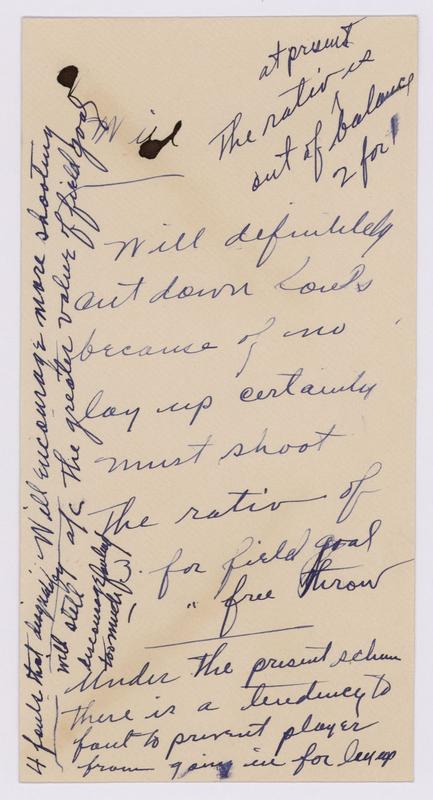 Will
at present
The ratio is
out of balance
2 for 1
Will definitely
cut down fouls
because of no
lay up certainly
must shoot
The ratio of
for field goal
" free throw
Under the present schem
there is a tendency to
foul to prevent player
from going in for lay up
4 fouls that disqual. Will encourage more shooting
will still a/c the greater value of field goal
encourage
too much